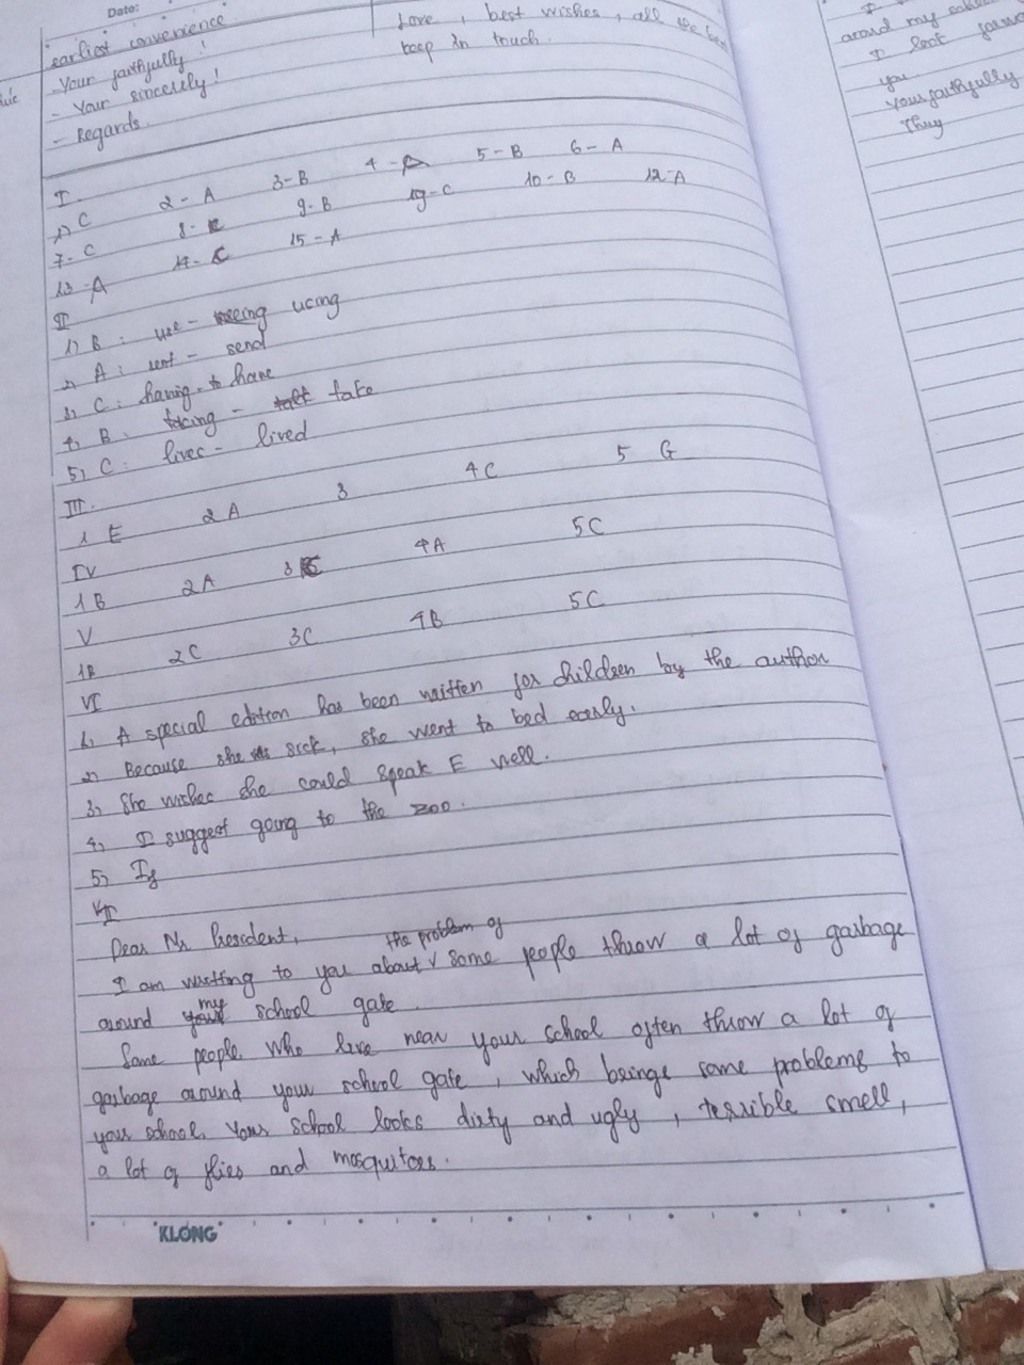 Date:
earliest convenience
- Your faithfully!
- Your sincerely!
- Regards.
Love, best wishes, all the best
keep in touch.
I.
1) C 2 - A 3 - B 4 - A 5 - B 6 - A
7 - C 8 - 9 - B 19 - C 10 - B 12 - A
13 - A 14 - C 15 - A
II
1) B : use - using
2) A : sent - send
3) C : having - to have
4) B : taking - take
5) C : lives - lived
III.
1 E 2 A 3 4 C 5 G
IV
1 B 2 A 3 4 A 5 C
V
1B 2C 3C 4B 5C
VI
1) A special edition has been written for children by the author
2) Because she was sick, she went to bed early.
3) She wishes she could speak E well.
4) I suggest going to the zoo.
5) If
VII
Dear Mr President,
I am writting to you about the problem of some people throw a lot of garbage
around my school gate.
Some people who live near your school often throw a lot of
garbage around your school gate, which brings some problems to
your school. Your school looks dirty and ugly, terrible smell,
a lot of flies and mosquitoes.
KLONG
I
around my
I look
you
Your faithfully
Thuy